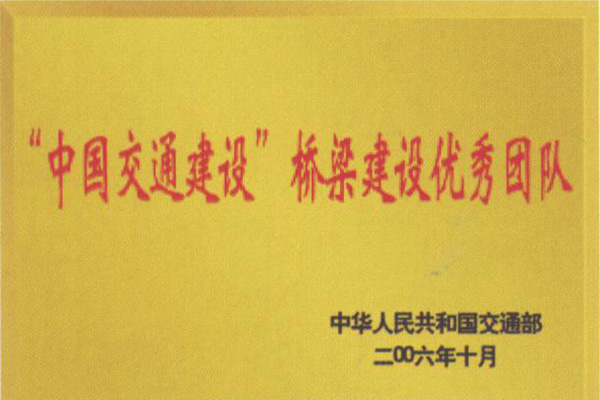 “中国交通建设”桥梁建设优秀团队
中华人民共和国交通部
二00六年十月